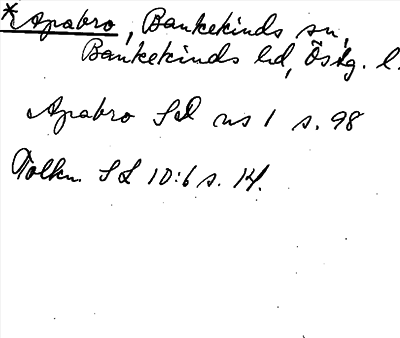 *Apabro, Bankekinds sn,
Bankekinds hd, Östg. l.
Apabro SD ns 1 s. 98
Tolkn. SL 10:6 s. 14.